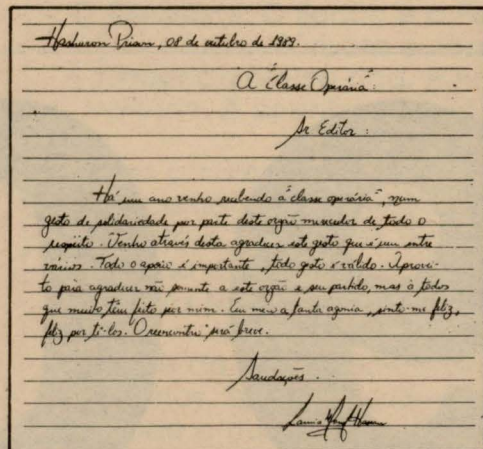 Hasharon Prison, 08 de outubro de 1989.
A "Classe Operária":
Sr Editor :
Há um ano venho recebendo a "classe operária", num
gesto de solidariedade por parte deste orgão merecedor de todo o
respeito. Venho através desta agradecer este gesto que é um entre
vários. Todo o apoio é importante, todo gesto é válido. Aprovei-
to para agradecer não somente a este orgão e seu partido, mas à todos
que muito têm feito por mim. Em meio a tanta agonia, sinto-me feliz,
feliz por tê-los. O reencontro será breve.
Saudações.